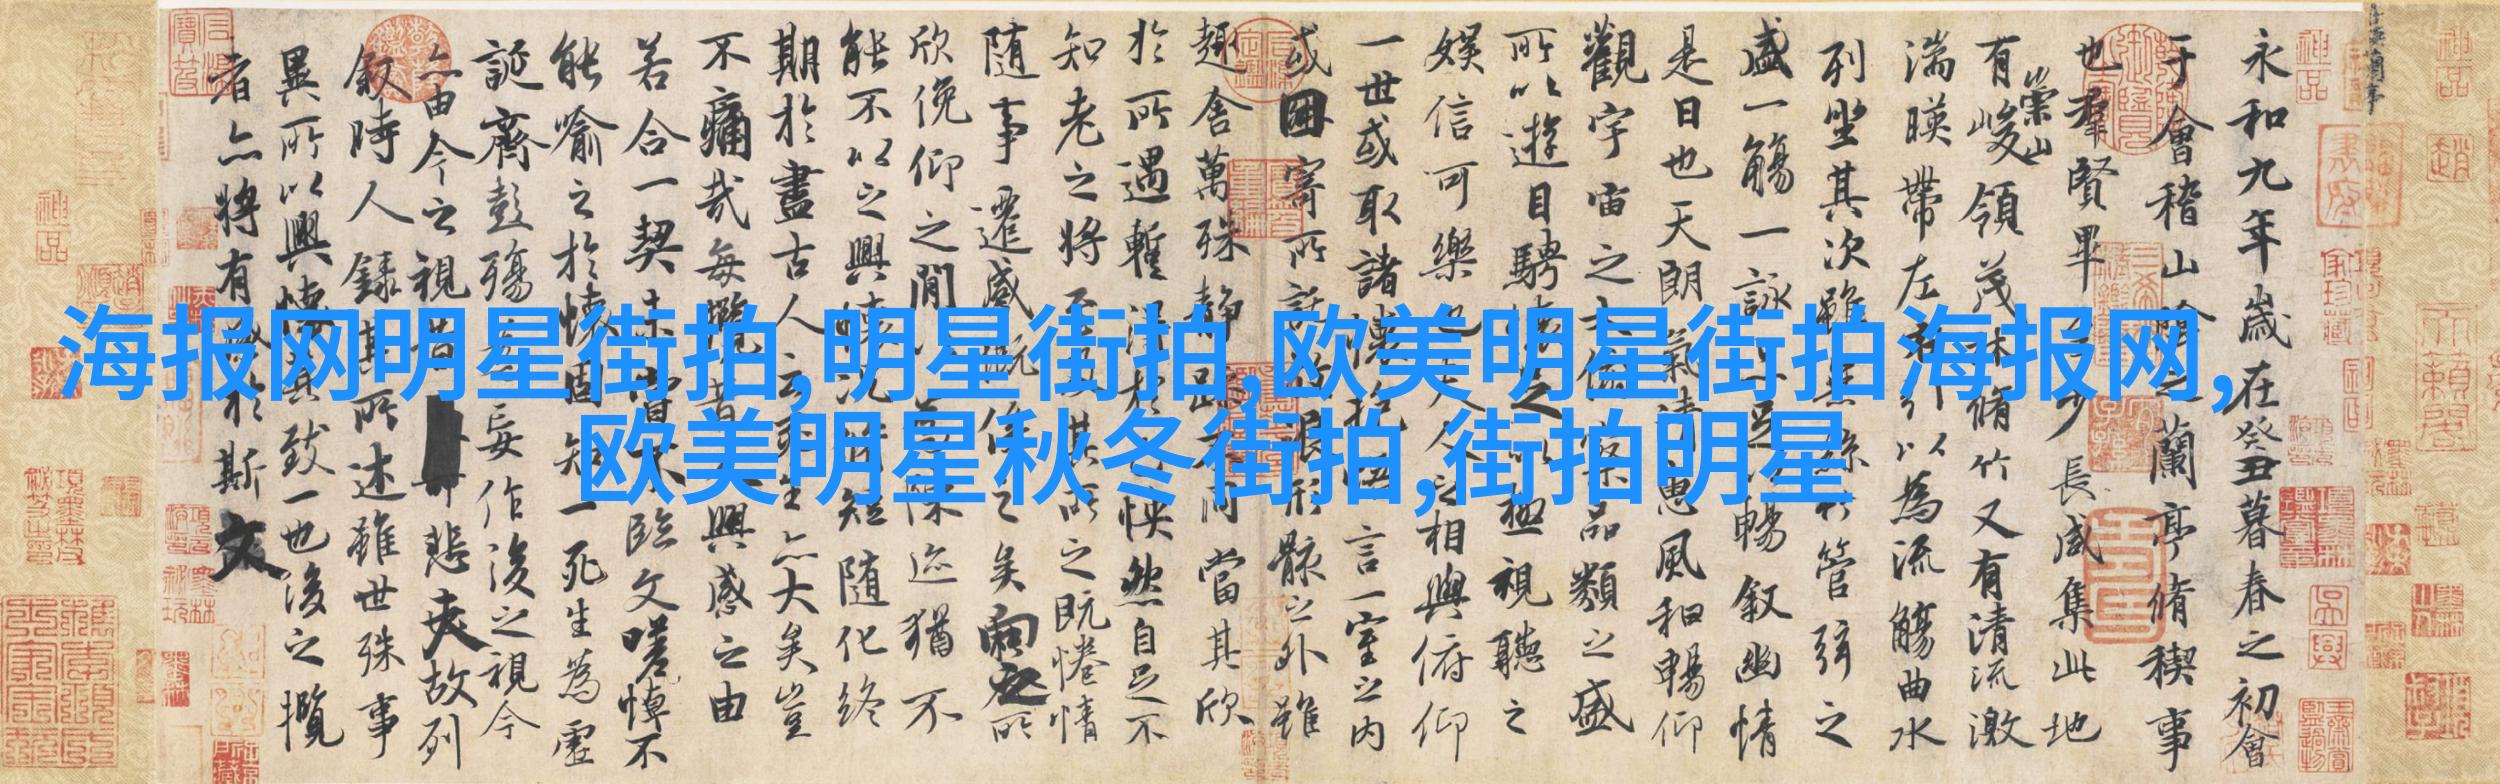 海报网明星街拍,明星街拍,欧美明星街拍海报网,
欧美明星秋冬街拍,街拍明星
永和九年歲在癸丑暮春之初會
于會稽山陰之蘭亭脩稧事
也羣賢畢至少長咸集此地
有崇山峻領茂林脩竹又有清流激
湍暎帶左右引以為流觴曲水
列坐其次雖無絲竹管弦之
盛一觴一詠亦足以暢敘幽情
是日也天朗氣清惠風和暢仰
觀宇宙之大俯察品類之盛
所以遊目騁懷足以極視聽之
娛信可樂也夫人之相與俯仰
一世或取諸懷抱悟言一室之內
或因寄所託放浪形骸之外雖
趣舍萬殊靜躁不同當其欣
於所遇暫得於己怏然自足不
知老之將至及其所之既惓情
隨事遷感慨係之矣向之所
欣俛仰之閒以為陳迹猶不
能不以之興懷況脩短隨化終
期於盡古人云死生亦大矣豈
不痛哉每攬昔人興感之由
若合一契未嘗不臨文嗟悼不
能喻之於懷固知一死生為虛
誕齊彭殤為妄作後之視今
亦由今之視昔悲夫故列
敘時人錄其所述雖世殊事
異所以興懷其致一也後之攬
者亦將有感於斯文